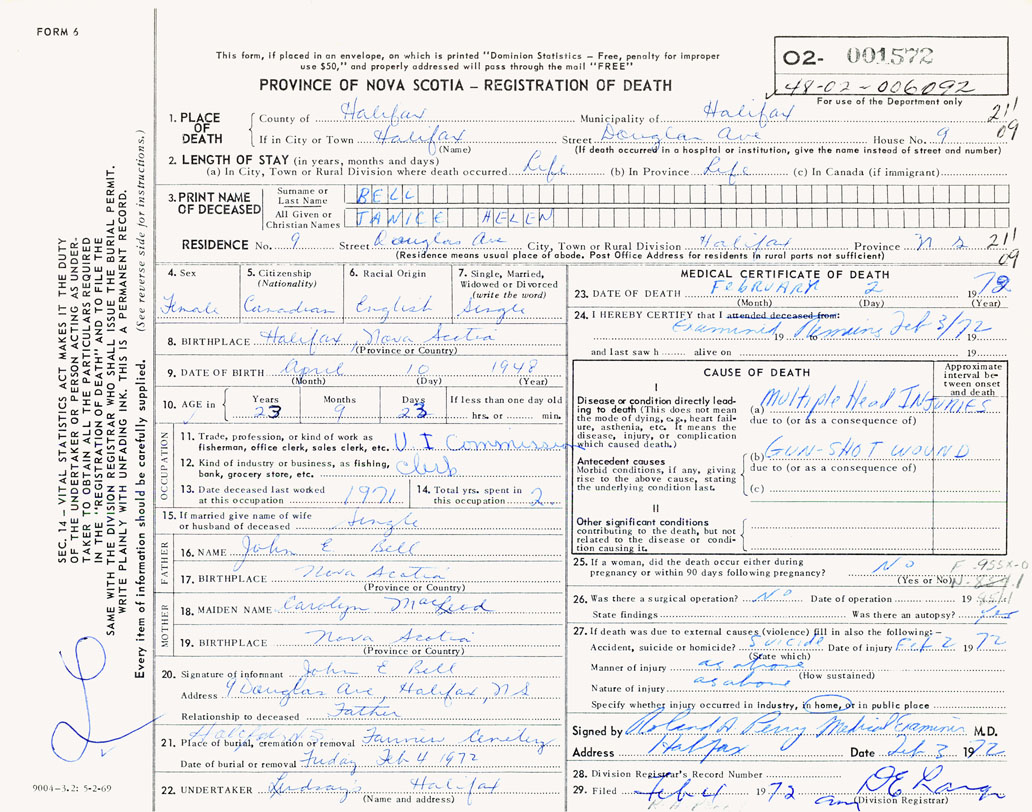 FORM 6
This form, if placed in an envelope, on which is printed "Dominion Statistics – Free, penalty for improper
use $50," and properly addressed will pass through the mail "FREE"
PROVINCE OF NOVA SCOTIA – REGISTRATION OF DEATH
O2- 001572
48-02-006092
For use of the Department only
1. PLACE OF DEATH
County of Halifax Municipality of Halifax 21'
If in City or Town Halifax Street Douglas Ave House No. 9 09
(Name) (If death occurred in a hospital or institution, give the name instead of street and number)
2. LENGTH OF STAY (in years, months and days)
(a) In City, Town or Rural Division where death occurred Life (b) In Province Life (c) In Canada (if immigrant)
3. PRINT NAME OF DECEASED
Surname or Last Name BELL
All Given or Christian Names JANICE HELEN
RESIDENCE No. 9 Street Douglas Ave City, Town or Rural Division Halifax Province N S 21'
(Residence means usual place of abode. Post Office Address for residents in rural parts not sufficient) 09
4. Sex
Female
5. Citizenship (Nationality)
Canadian
6. Racial Origin
English
7. Single, Married, Widowed or Divorced (write the word)
Single
8. BIRTHPLACE Halifax, Nova Scotia
(Province or Country)
9. DATE OF BIRTH April 10 1948
(Month) (Day) (Year)
10. AGE in Years Months Days If less than one day old
23 9 23 hrs. or min.
OCCUPATION
11. Trade, profession, or kind of work as
fisherman, office clerk, sales clerk, etc. U I Commission
12. Kind of industry or business, as fishing,
bank, grocery store, etc. Clerk
13. Date deceased last worked
at this occupation 1971
14. Total yrs. spent in
this occupation 2
15. If married give name of wife
or husband of deceased Single
FATHER
16. NAME John E Bell
17. BIRTHPLACE Nova Scotia
(Province or Country)
MOTHER
18. MAIDEN NAME Carolyn MacLeod
19. BIRTHPLACE Nova Scotia
(Province or Country)
20. Signature of informant John E Bell
Address 9 Douglas Ave, Halifax, NS
Relationship to deceased Father
Halifax N S
21. Place of burial, cremation or removal Cemetery
Date of burial or removal Friday Feb 4 1972
22. UNDERTAKER Lindsays Halifax
(Name and address)
MEDICAL CERTIFICATE OF DEATH
23. DATE OF DEATH FEBRUARY 2 1972
(Month) (Day) (Year)
24. I HEREBY CERTIFY that I attended deceased from:
Examined Remains Feb 3/72
19 to 19
and last saw h alive on 19
CAUSE OF DEATH
Approximate interval between onset and death
I
Disease or condition directly leading to death (This does not mean the mode of dying, e.g., heart failure, asthenia, etc. It means the disease, injury, or complication which caused death.)
(a) Multiple Head INJURIES
due to (or as a consequence of)
Antecedent causes
Morbid conditions, if any, giving rise to the above cause, stating the underlying condition last.
(b) GUN-SHOT WOUND
due to (or as a consequence of)
(c)
II
Other significant conditions contributing to the death, but not related to the disease or condition causing it.
25. If a woman, did the death occur either during
pregnancy or within 90 days following pregnancy? No
(Yes or No)
F .955X-0
26. Was there a surgical operation? No Date of operation 19
State findings Was there an autopsy? Yes
27. If death was due to external causes (violence) fill in also the following:–
Accident, suicide or homicide? Suicide Date of injury Feb 2 1972
(State which)
Manner of injury as above
(How sustained)
Nature of injury as above
Specify whether injury occurred in industry, in home, or in public place
Signed by Roland A Perry Medical Examiner M.D.
Address Halifax Date Feb 3 1972
28. Division Registrar's Record Number
29. Filed Feb 4 1972
(Division Registrar)
SEC. 14 – VITAL STATISTICS ACT MAKES IT THE DUTY
OF THE UNDERTAKER OR PERSON ACTING AS UNDER-
TAKER TO OBTAIN ALL THE PARTICULARS REQUIRED
IN THE "REGISTRATION OF DEATH" AND TO FILE THE
SAME WITH THE DIVISION REGISTRAR WHO SHALL ISSUE THE BURIAL PERMIT.
WRITE PLAINLY WITH UNFADING INK. THIS IS A PERMANENT RECORD.
Every item of information should be carefully supplied. (See reverse side for instructions.)
9004-3.2: 5-2-69